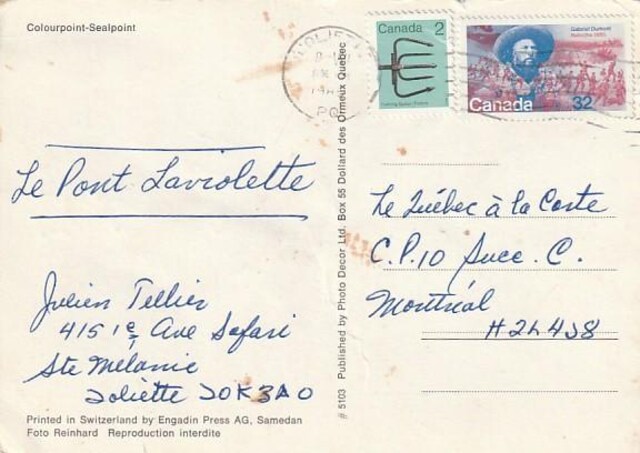 Colourpoint-Sealpoint
Canada 2
Gabriel Dumont
Canada 32
JOLIETTE
PQ
Le Pont Laviolette
Julien Tellier
415 1e Ave Safari
Ste Mélanie
Joliette J0K 3A0
Le Québec à la Carte
C.P. 10 Succ. C.
Montréal
H2L 4J8
# 5103 Published by Photo Decor Ltd. Box 55 Dollard des Ormeux Quebec
Printed in Switzerland by Engadin Press AG, Samedan
Foto Reinhard Reproduction interdite